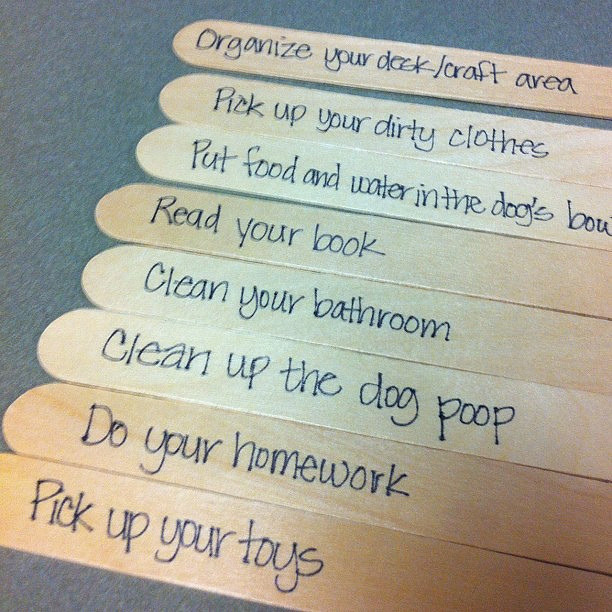 Organize your desk/craft area
Pick up your dirty clothes
Put food and water in the dog's bow
Read your book
Clean your bathroom
Clean up the dog poop
Do your homework
Pick up your toys